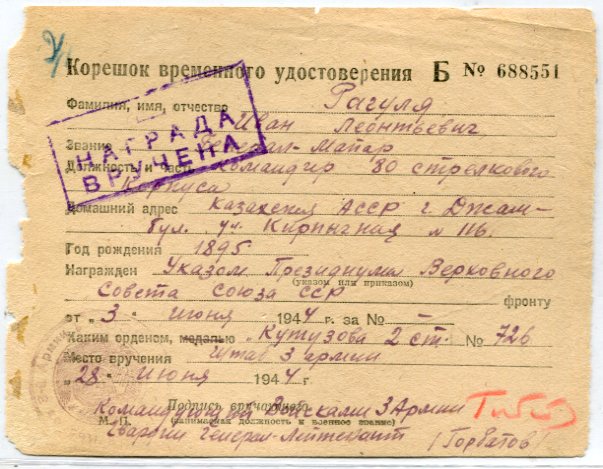 Корешок временного удостоверения Б № 688551
Фамилия, имя, отчество Рагуля
Иван Леонтьевич
НАГРАДА
ВРУЧЕНА
Звание Генерал-Майор
Должность и часть Командир 80 стрелкового
Корпуса
Домашний адрес Казахская АССР г. Джам-
бул. ул. Кирпичная № 116.
Год рождения 1895
Награжден Указом Президиума Верховного
(указом или приказом)
Совета Союза ССР фронту
от „3" июня 1944 г. за № —
Каким орденом, медалью Кутузова 2 ст. № 726
Место вручения Штаб 3 армии
„28" июня 1944 г.
Подпись вручившего
Командующий Войсками 3 Армии
М. П. (занимаемая должность и военное звание)
Гвардии Генерал-Лейтенант (Горбатов)